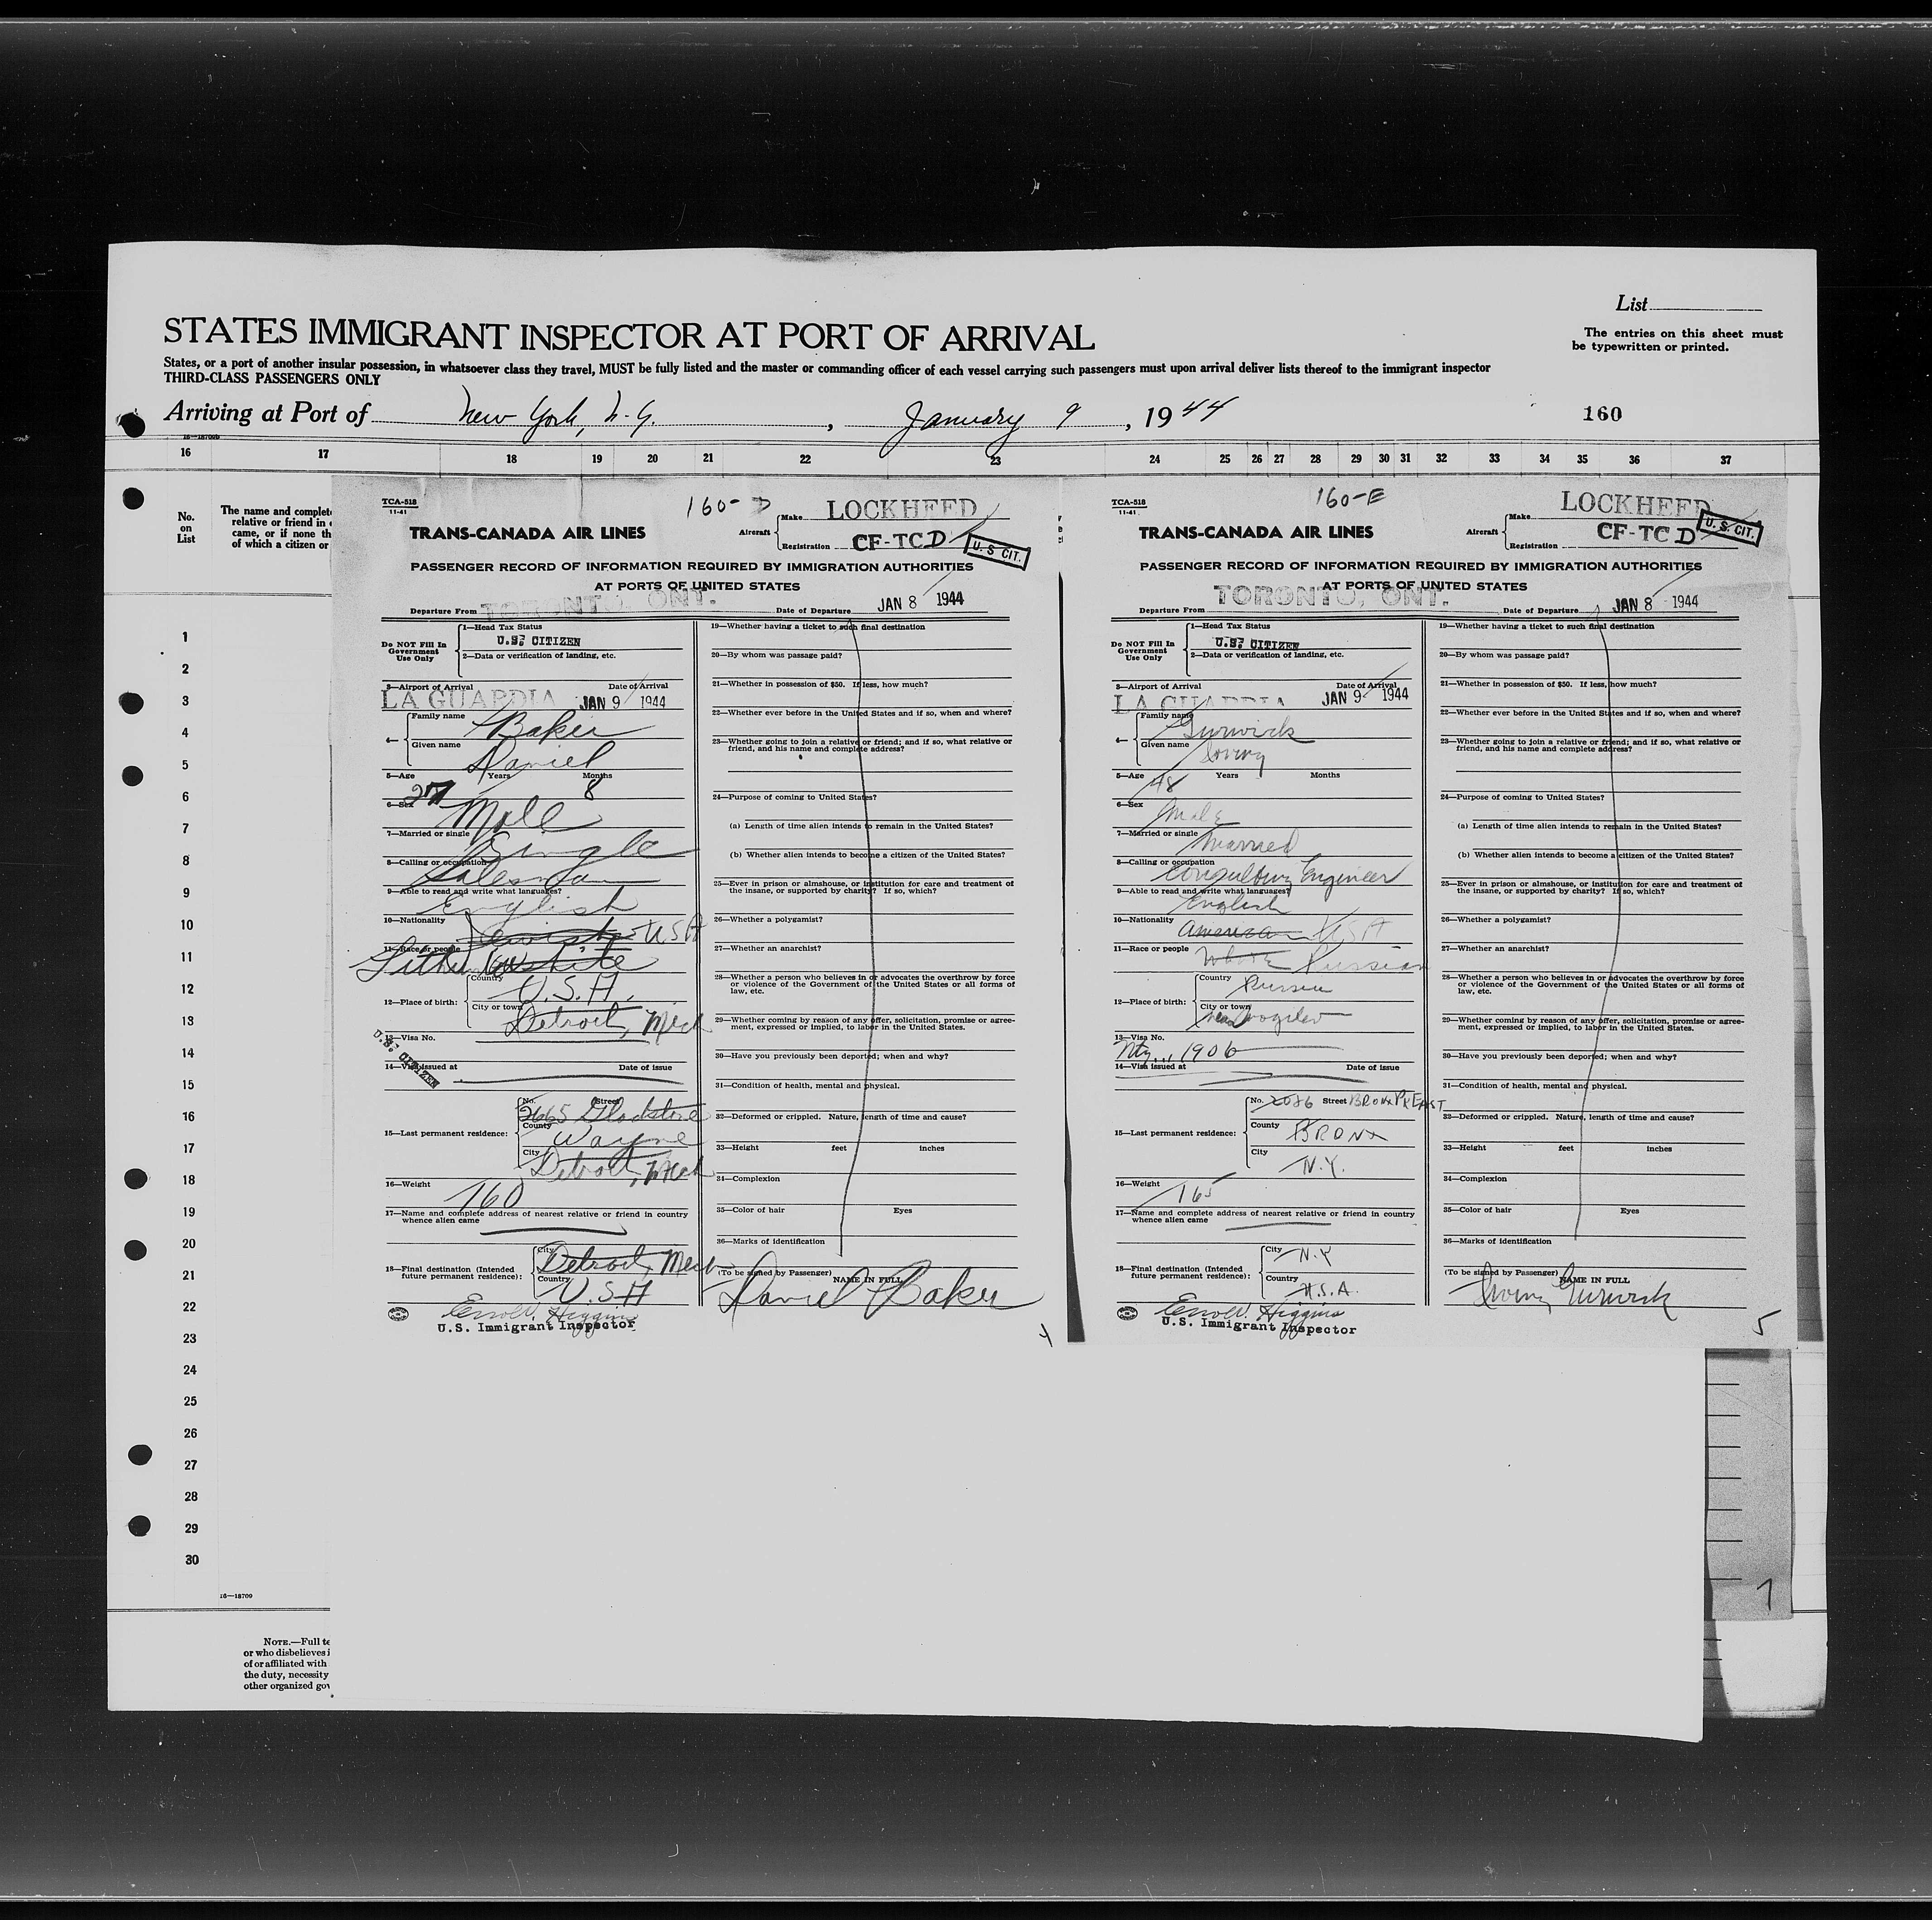 List
STATES IMMIGRANT INSPECTOR AT PORT OF ARRIVAL
The entries on this sheet must
be typewritten or printed.
States, or a port of another insular possession, in whatsoever class they travel, MUST be fully listed and the master or commanding officer of each vessel carrying such passengers must upon arrival deliver lists thereof to the immigrant inspector
THIRD-CLASS PASSENGERS ONLY
Arriving at Port of New York, N.Y., January 9, 1944
160
16—18709b
16 17 18 19 20 21 22 23 24 25 26 27 28 29 30 31 32 33 34 35 36 37
No.
on
List
The name and complete
relative or friend in
came, or if none th
of which a citizen or
1
2
3
4
5
6
7
8
9
10
11
12
13
14
15
16
17
18
19
20
21
22
23
24
25
26
27
28
29
30
16—18709
NOTE.—Full te
or who disbelieves i
of or affiliated with
the duty, necessity
other organized gov
TCA-518
11-41
160-D
TRANS-CANADA AIR LINES
Aircraft
Make LOCKHEED
Registration CF-TCD
U. S CIT.
PASSENGER RECORD OF INFORMATION REQUIRED BY IMMIGRATION AUTHORITIES
AT PORTS OF UNITED STATES
Departure From TORONTO, ONT. Date of Departure JAN 8 1944
Do NOT Fill In
Government
Use Only
1—Head Tax Status
U.S. CITIZEN
2—Data or verification of landing, etc.
3—Airport of Arrival Date of Arrival
LA GUARDIA JAN 9 1944
4—
Family name Baker
Given name Daniel
5—Age Years Months
27 8
6—Sex Male
7—Married or single
Single
8—Calling or occupation
Salesman
9—Able to read and write what languages?
English
10—Nationality
U.S.A
11—Race or people
White
12—Place of birth:
Country
U.S.A.
City or town
Detroit, Mich
13—Visa No.
U.S. CITIZEN
14—Visa issued at Date of issue
15—Last permanent residence:
No. Street
2665 Gladstone
County
Wayne
City
Detroit, Mich
16—Weight
160
17—Name and complete address of nearest relative or friend in country
whence alien came
18—Final destination (Intended
future permanent residence):
City
Detroit, Mich
Country
U.S.A
Errol Higgins
U.S. Immigrant Inspector
19—Whether having a ticket to such final destination
20—By whom was passage paid?
21—Whether in possession of $50. If less, how much?
22—Whether ever before in the United States and if so, when and where?
23—Whether going to join a relative or friend; and if so, what relative or
friend, and his name and complete address?
24—Purpose of coming to United States?
(a) Length of time alien intends to remain in the United States?
(b) Whether alien intends to become a citizen of the United States?
25—Ever in prison or almshouse, or institution for care and treatment of
the insane, or supported by charity? If so, which?
26—Whether a polygamist?
27—Whether an anarchist?
28—Whether a person who believes in or advocates the overthrow by force
or violence of the Government of the United States or all forms of
law, etc.
29—Whether coming by reason of any offer, solicitation, promise or agree-
ment, expressed or implied, to labor in the United States.
30—Have you previously been deported; when and why?
31—Condition of health, mental and physical.
32—Deformed or crippled. Nature, length of time and cause?
33—Height feet inches
34—Complexion
35—Color of hair Eyes
36—Marks of identification
(To be signed by Passenger) NAME IN FULL
Daniel Baker
4
TCA-518
11-41
160-E
TRANS-CANADA AIR LINES
Aircraft
Make LOCKHEED
Registration CF-TCD
U. S. CIT.
PASSENGER RECORD OF INFORMATION REQUIRED BY IMMIGRATION AUTHORITIES
AT PORTS OF UNITED STATES
Departure From TORONTO, ONT. Date of Departure JAN 8 1944
Do NOT Fill In
Government
Use Only
1—Head Tax Status
U.S. CITIZEN
2—Data or verification of landing, etc.
3—Airport of Arrival Date of Arrival
LA GUARDIA JAN 9 1944
4—
Family name Gurwick
Given name Irving
5—Age Years Months
48
6—Sex
Male
7—Married or single
Married
8—Calling or occupation
Consulting Engineer
9—Able to read and write what languages?
English
10—Nationality
American USA
11—Race or people White Russian
12—Place of birth:
Country
Russia
City or town
near Mogilev
13—Visa No.
Nty 1906
14—Visa issued at Date of issue
15—Last permanent residence:
No. 2086 Street BRONX PK EAST
County
BRONX
City
N.Y.
16—Weight
165
17—Name and complete address of nearest relative or friend in country
whence alien came
18—Final destination (Intended
future permanent residence):
City
N.Y
Country
U.S.A.
Errol Higgins
U.S. Immigrant Inspector
19—Whether having a ticket to such final destination
20—By whom was passage paid?
21—Whether in possession of $50. If less, how much?
22—Whether ever before in the United States and if so, when and where?
23—Whether going to join a relative or friend; and if so, what relative or
friend, and his name and complete address?
24—Purpose of coming to United States?
(a) Length of time alien intends to remain in the United States?
(b) Whether alien intends to become a citizen of the United States?
25—Ever in prison or almshouse, or institution for care and treatment of
the insane, or supported by charity? If so, which?
26—Whether a polygamist?
27—Whether an anarchist?
28—Whether a person who believes in or advocates the overthrow by force
or violence of the Government of the United States or all forms of
law, etc.
29—Whether coming by reason of any offer, solicitation, promise or agree-
ment, expressed or implied, to labor in the United States.
30—Have you previously been deported; when and why?
31—Condition of health, mental and physical.
32—Deformed or crippled. Nature, length of time and cause?
33—Height feet inches
34—Complexion
35—Color of hair Eyes
36—Marks of identification
(To be signed by Passenger) NAME IN FULL
Irving Gurwick
5
7